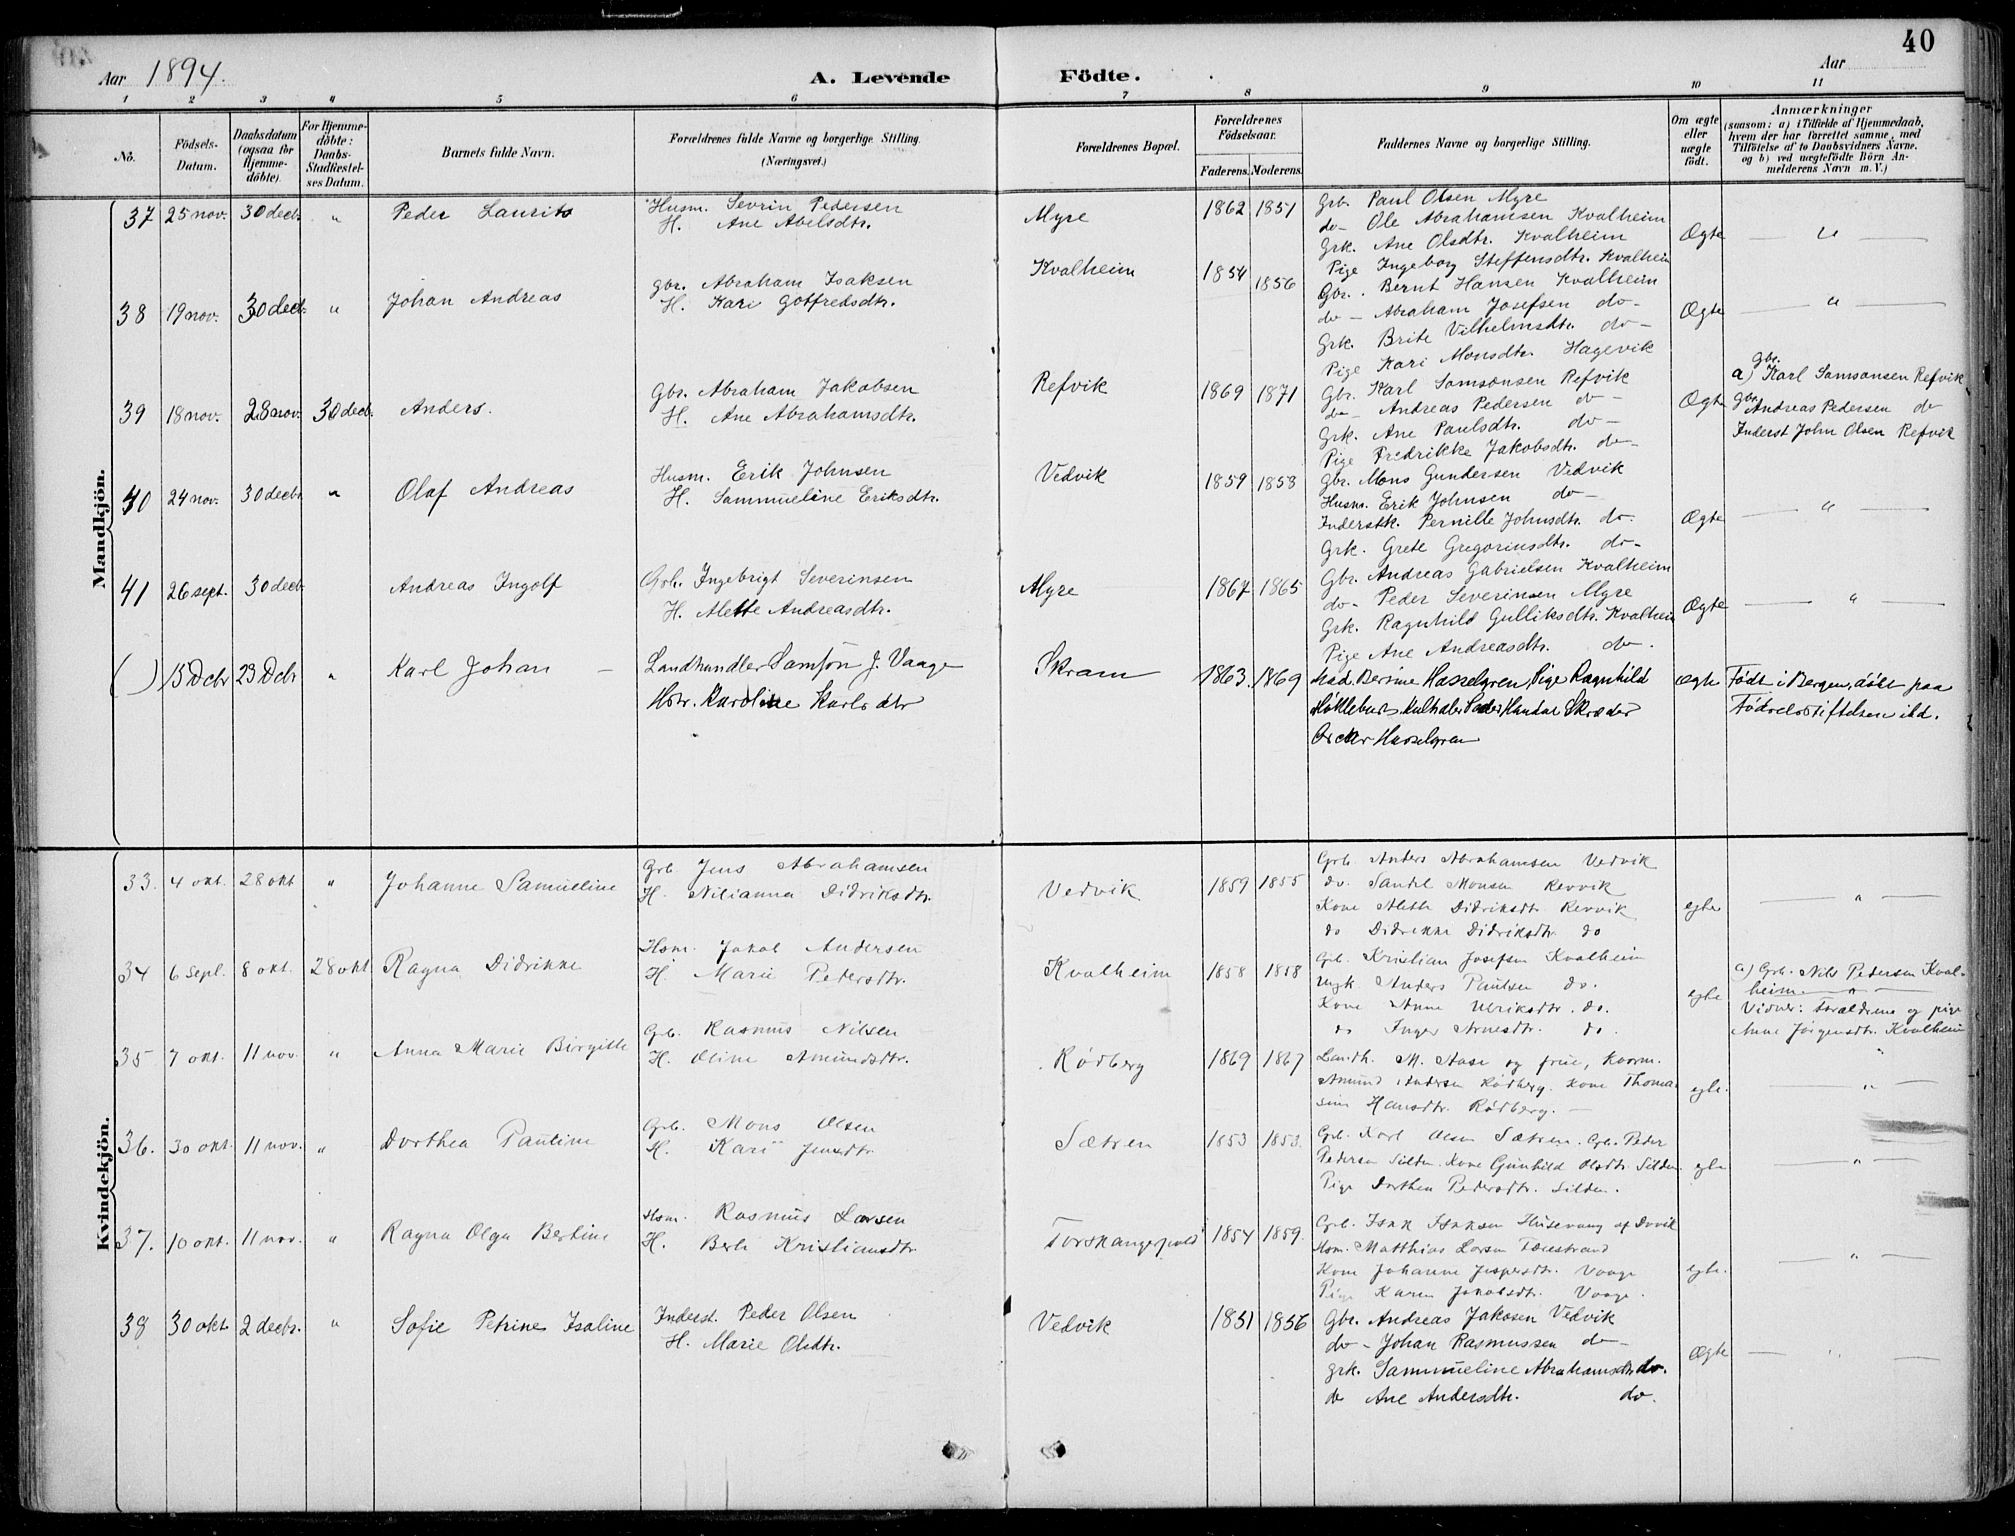 40
Aar 1894.
A. Levende Födte.
Aar
1 2 3 4 5 6 7 8 9 10 11
No.
Födsels-Datum.
Daabsdatum (ogsaa for Hjemme-döbte).
For Hjemme-döbte: Daabs-Stadfæstel-ses Datum.
Barnets fulde Navn.
Forældrenes fulde Navne og borgerlige Stilling. (Næringsvei.)
Forældrenes Bopæl.
Forældrenes Födselsaar.
Faderens. Moderens.
Faddernes Navne og borgerlige Stilling.
Om ægte eller uægte födt.
Anmærkninger
(saasom: a) i Tilfælde af Hjemmedaab,
hvem der har forrettet samme, med
Tilföielse af to Daabsvidners Navne,
og b) ved uægtefödte Börn An-
melderens Navn m. V.)
Mandkjön.
37 25 nov. 30 decb. " Peder Laurits
Husm. Sevrin Pedersen
H. Ane Abelsdtr.
Myre 1862 1851
Grb. Paul Olsen Myre
do- Ole Abrahamsen Kvalheim
Grk. Ane Olsdtr. Kvalheim
Pige Ingeborg Steffensdtr. Kvalheim
Ægte "
38 19 nov. 30 decb. " Johan Andreas
gbr. Abraham Isaksen
H. Kari Gotfredsdtr.
Kvalheim 1854 1856
Gbr. Bernt Hansen Kvalheim
do- Abraham Josefsen do-
Grk. Brite Vilhelmsdtr. do-
Pige Kari Monsdtr. Hagevik
Ægte "
39 18 nov. 28 nov. 30 decb. Anders.
Gbr. Abraham Jakobsen
H. Ane Abrahamsdtr.
Refvik 1869 1871
Gbr. Karl Samsonsen Refvik
do- Andreas Pedersen do-
Grk. Ane Paulsdtr. do-
Pige Fredrikke Jakobsdtr. do-
Ægte
a) Gbr. Karl Samsonsen Refvik
Gbr. Andreas Pedersen do
Inderst John Olsen Refvik
40 24 nov. 30 decb. " Olaf Andreas
Husm. Erik Johnsen
H. Sammueline Eriksdtr.
Vedvik 1859 1853
Gbr. Mons Gundersen Vedvik
Husm. Erik Johnsen do-
Inderstk. Pernille Johnsdtr. do.
Grk. Grete Gregoriusdtr. do-
Ægte "
41 26 sept. 30 decb. " Andreas Ingolf
Grb. Ingebrigt Severinsen
H. Alette Andreasdtr.
Myre 1867 1865
Gbr. Andreas Gabrielsen Kvalheim
do- Peder Severinsen Myre
Grk. Ragnhild Gulliksdtr. Kvalheim
Pige Ane Andreasdtr. do.
Ægte "
( ) 15 Dcbr 23 Dcbr " Karl Johan
Landhandler Samson J. Vaage
Hstr. Karoline Karlsdtr
Skram 1863. 1869
Mad. Berine Hasselgren, Pige Ragnhild
Oscar Hasselgren
ægte
Födt i Bergen, döbt paa
Födselsstiftelsen ibd.
Kvindekjön.
33. 4 okt. 28 okt " Johanne Samueline
Grb. Jens Abrahamsen
H. Nilianna Didriksdtr.
Vedvik 1859 1855
Grb. Anders Abrahamsen Vedvik
do. Sandel Monsen Revvik
Kone Alette Didriksdtr. Revvik
do Didrikke Didriksdtr. do
egte "
34 6 sept. 8 okt. 28 okt. Ragna Didrikke
Hsm. Jakob Andersen
H. Marie Petersdtr.
Kvalheim 1858 1858
Grb. Kristian Josefsen Kvalheim
Ungk Anders Paulsen do.
Kone Anne Ulriksdtr. do.
do Inger Arnesdtr. do.
egte
a) Grb. Nils Pedersen Kval-
heim. "
Vidner: Forældrene og pige
Anne Jörgensdtr. Kvalheim
35 7 okt. 11 nov. " Anna Marie Birgitte
Grb. Rasmus Nilsen
H. Oline Amundsdtr.
Rödberg 1869 1867
Landh. M. Aase og frue,
Amund Andersen Rödberg. Kone Thoma-
sine Hansdtr. Rödberg.
egte. "
36. 30 okt. 11 nov. " Dorthea Pauline
Grb. Mons Olsen
H. Kari Jensdtr
Sætren 1853 1853.
Grb. Karl Olsen Sætren. Grb. Peder
Pedersen Silden. Kone Gunhild Olsdtr. Silden.
Pige Dorthea Pedersdtr. Silden.
egte "
37. 10 okt. 11 nov. " Ragna Olga Bertine
Hsm. Rasmus Larsen
H. Berte Kristiansdtr.
Torskangerpold 1854 1859.
Grb. Isak Isaksen Husevang af Davik
Hsm. Matthias Larsen
Kone Johanne Jespersdtr. Vaage
Pige Karen Jakobsdtr. Vaage.
egte. "
38 30 okt 2 decbr. " Sofie Petrine Isaline
Inderst. Peder Olsen
H. Marie Olsdtr.
Vedvik 1851 1856
Gbr. Andreas Jakosen Vedvik
do- Johan Rasmussen do-
grk. Sammueline Abrahamsdtr. do.
do Ane Andersdtr. do.
Ægte "